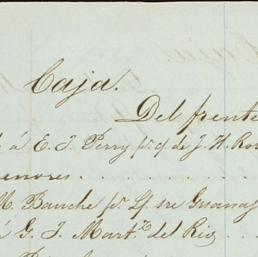 Caja.
Del frente
á E. J. Perry pr. c/ de J. H. Ro
enores
M. Bauche pr. L/ sre Guanaj
á G. J. Martz. del Rio